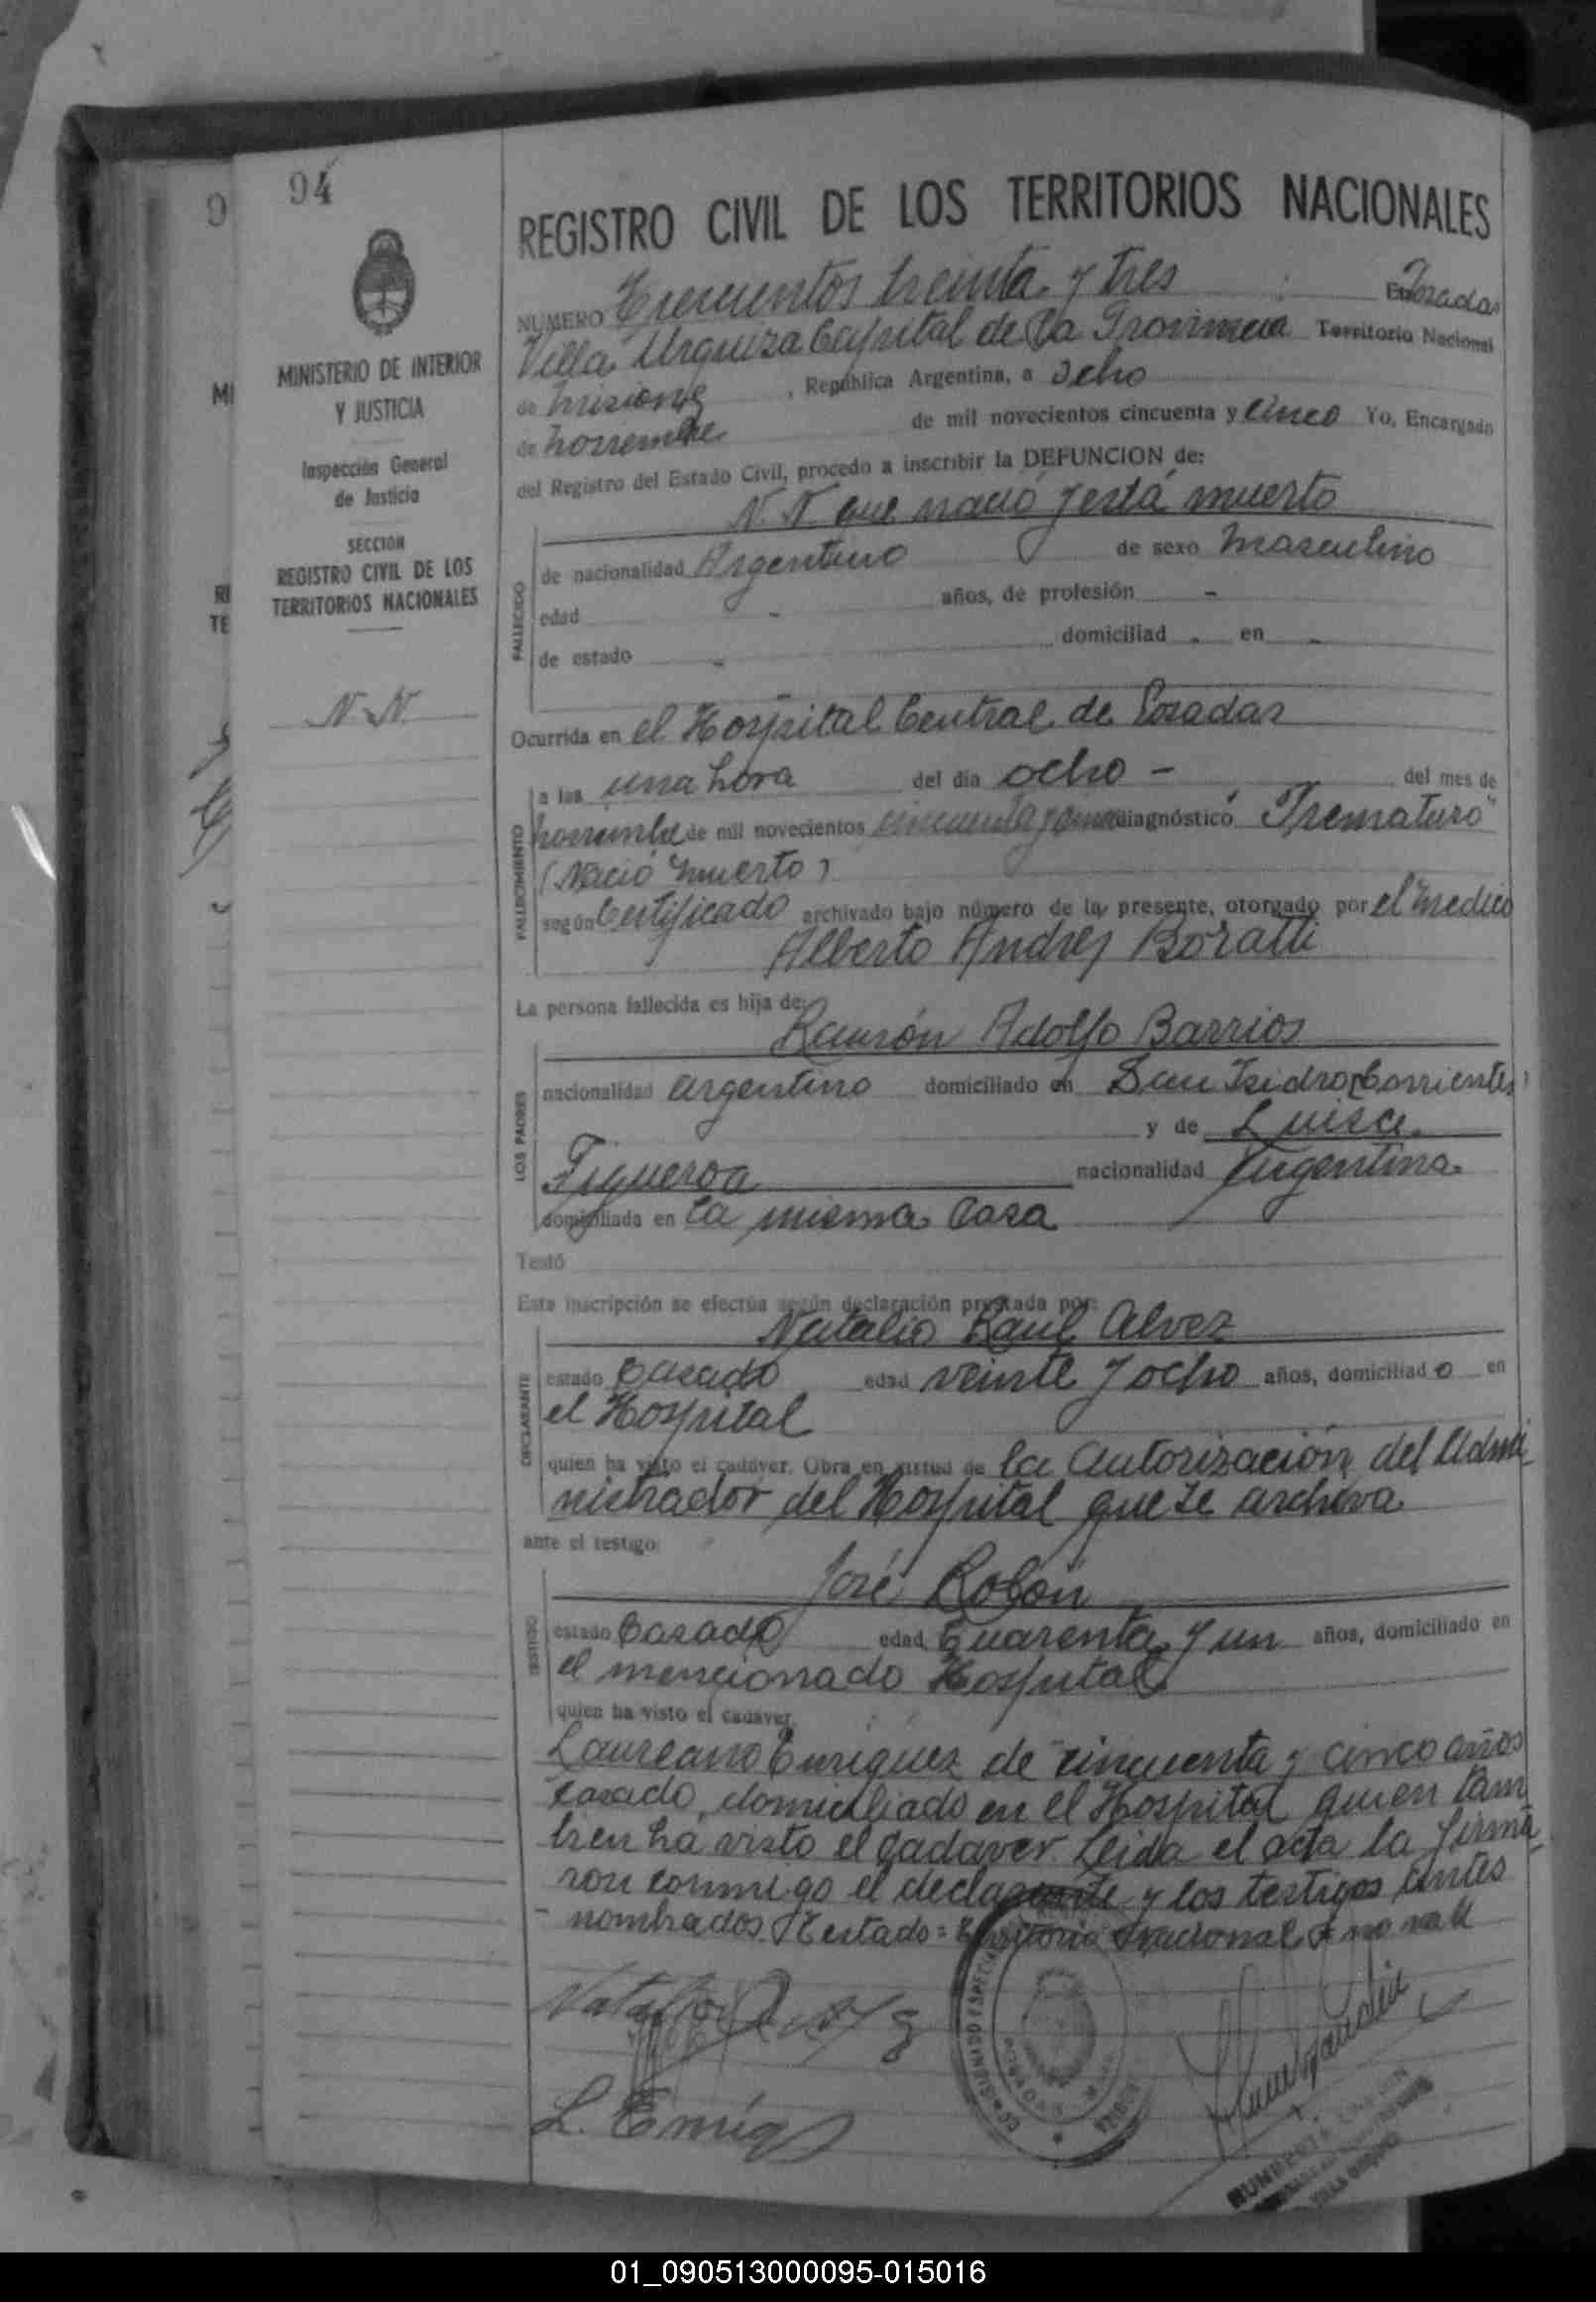 94
9
MINISTERIO DE INTERIOR
Y JUSTICIA
Inspección General
de Justicia
SECCION
REGISTRO CIVIL DE LOS
TERRITORIOS NACIONALES
N. N.
MI
RE
TE
REGISTRO CIVIL DE LOS TERRITORIOS NACIONALES
NUMERO Trescientos treinta y tres En Posadas
Villa Urquiza Capital de la Provincia Territorio Nacional
de Misiones, República Argentina, a Ocho
de noviembre de mil novecientos cincuenta y cinco Yo, Encargado
del Registro del Estado Civil, procedo a inscribir la DEFUNCION de:
N. N que nació y está muerto
FALLECIDO
de nacionalidad Argentino de sexo Masculino
edad - años, de profesión -
de estado - domiciliad - en -
Ocurrida en el Hospital Central de Posadas
FALLECIMIENTO
a las una hora del día ocho - del mes de
noviembre de mil novecientos cincuenta y cinco diagnóstico "Prematuro"
(Nació muerto)
según Certificado archivado bajo número de la presente, otorgado por el médico
Alberto Andres Boratti
La persona fallecida es hija de:
Ramón Adolfo Barrios
LOS PADRES
nacionalidad argentino domiciliado en San Isidro (Corrientes)
y de Luisa
Figueroa nacionalidad Argentina
domiciliada en la misma casa
Testó
Esta inscripción se efectúa según declaración prestada por:
Natalio Raul Alvez
DECLARANTE
estado Casado edad veinte y ocho años, domiciliado en
el Hospital
quien ha visto el cadáver. Obra en virtud de la autorización del Admi-
nistrador del Hospital que se archiva
ante el testigo:
José Rolón
TESTIGO
estado Casado edad Cuarenta y un años, domiciliado en
el mencionado Hospital
quien ha visto el cadáver.
Laureano Enriquez de cincuenta y cinco años
casado, domiciliado en el Hospital quien tam
bien ha visto el cadaver. Leida el acta la firma-
ron conmigo el declarante y los testigos antes
nombrados. Testado = Territorio Nacional = no vale
L. Enriq
VILLA URQUIZA
01_090513000095-015016